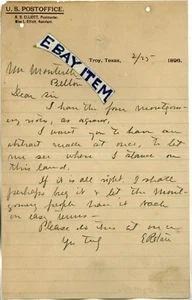 U. S. POSTOFFICE.
R. B. ELLIOTT, Postmaster.
Elliott, Assistant.
EBAY ITEM
Troy, Texas, 2/25 1890.
Belton
Dear Sir
I have the four montgom-
ery as
I want you to have an
abstract made at once, to let
me see where I stand on
this land.
If it is all right, I shall
perhaps buy it & let the Mont-
gomery people have it back
on easy terms—
Please do this at once
Yrs Truly